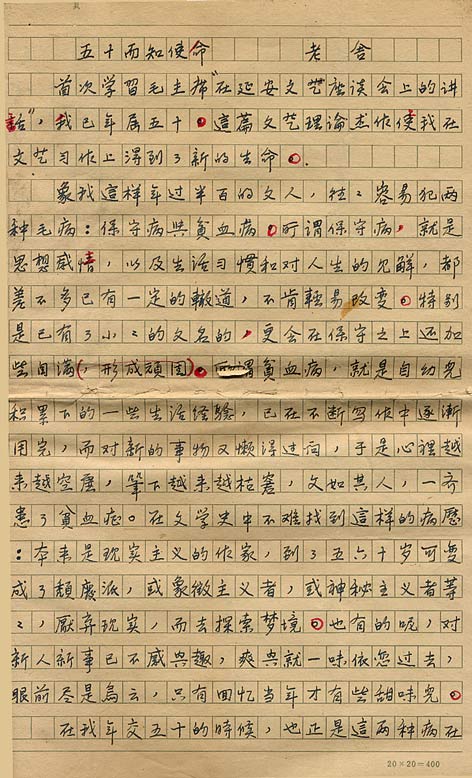 五十而知使命 老舍
首次学習毛主席“在延安文艺座談会上的講
話”，我已年届五十。這篇文艺理論杰作使我在
文艺习作上得到了新的生命。
象我這样年过半百的文人，往々容易犯两
种毛病：保守病與貧血病。所謂保守病，就是
思想感情，以及生活习慣和对人生的見解，都
差不多已有一定的轍道，不肯輕易改变。特别
是已有了小々的文名的，更会在保守之上还加
些自满（，形成頑固）。所謂貧血病，就是自幼兒
积累下的一些生活经驗，已在不断写作中逐漸
用完，而对新的事物又懒得过问，于是心裡越
来越空虚，筆下越来越枯窘，文如其人，一齐
患了貧血症。在文学史中不难找到這样的病歷
：本来是现实主义的作家，到了五六十岁可变
成了頹廢派，或象徵主义者，或神秘主义者等
々，厭弃现实，而去探索梦境。也有的呢，对
新人新事已不感興趣，爽興就一味依恋过去，
眼前尽是烏云，只有回忆当年才有些甜味兒。
在我年交五十的時候，也正是這两种病在
20×20=400